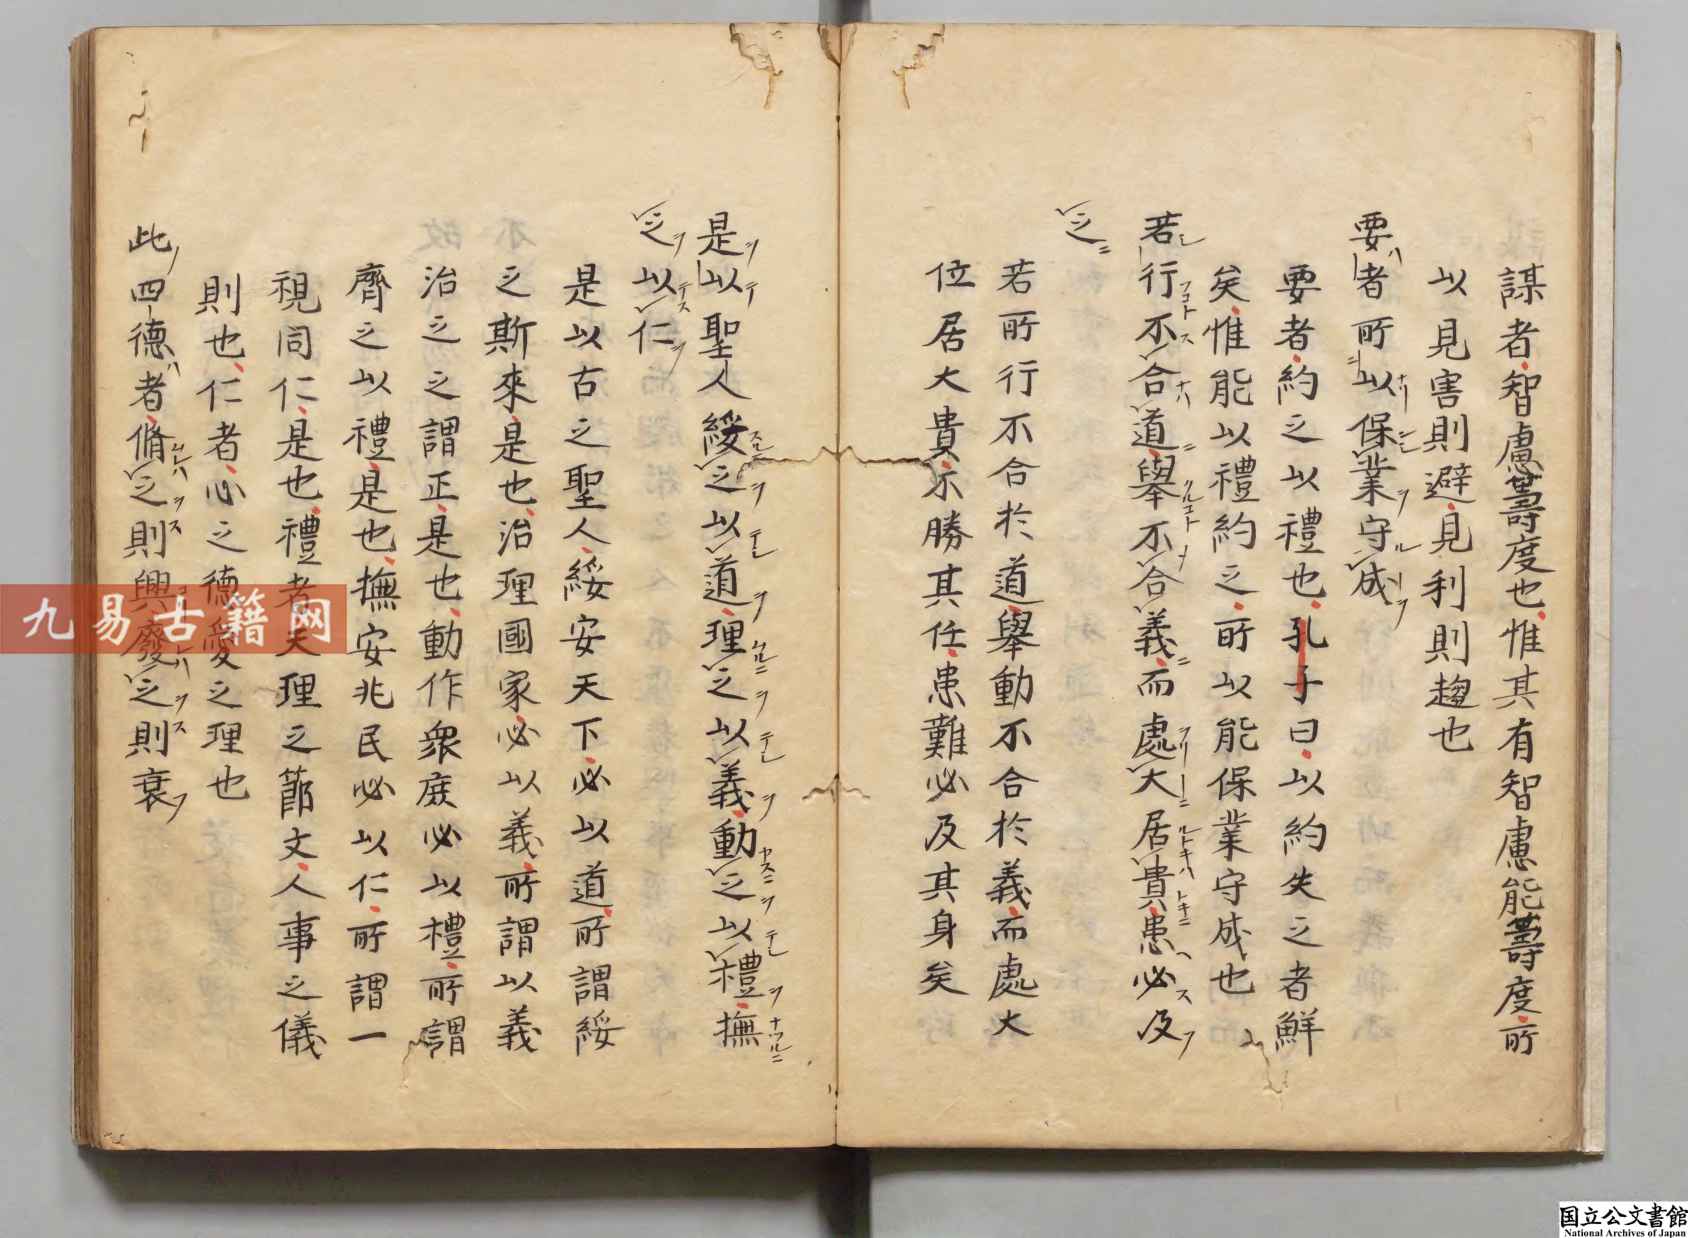 謀者智慮籌度也惟其有智慮能籌度所
以見害則避見利則趨也
要者所以保業守成
要者約之以禮也孔子曰以約失之者鮮
矣惟能以禮約之所以能保業守成也
若行不合道舉不合義而處大居貴患必及
之
若所行不合於道舉動不合於義而處大
位居大貴不勝其任患難必及其身矣
是以聖人綏之以道理之以義動之以禮撫
之以仁
是以古之聖人綏安天下必以道所謂綏
之斯來是也治理國家必以義所謂以義
治之之謂正是也動作眾庶必以禮所謂
齊之以禮是也撫安兆民必以仁所謂一
視同仁是也禮者天理之節文人事之儀
則也仁者心之德愛之理也
此四德者脩之則興廢之則衰
九易古籍网
国立公文書館
National Archives of Japan